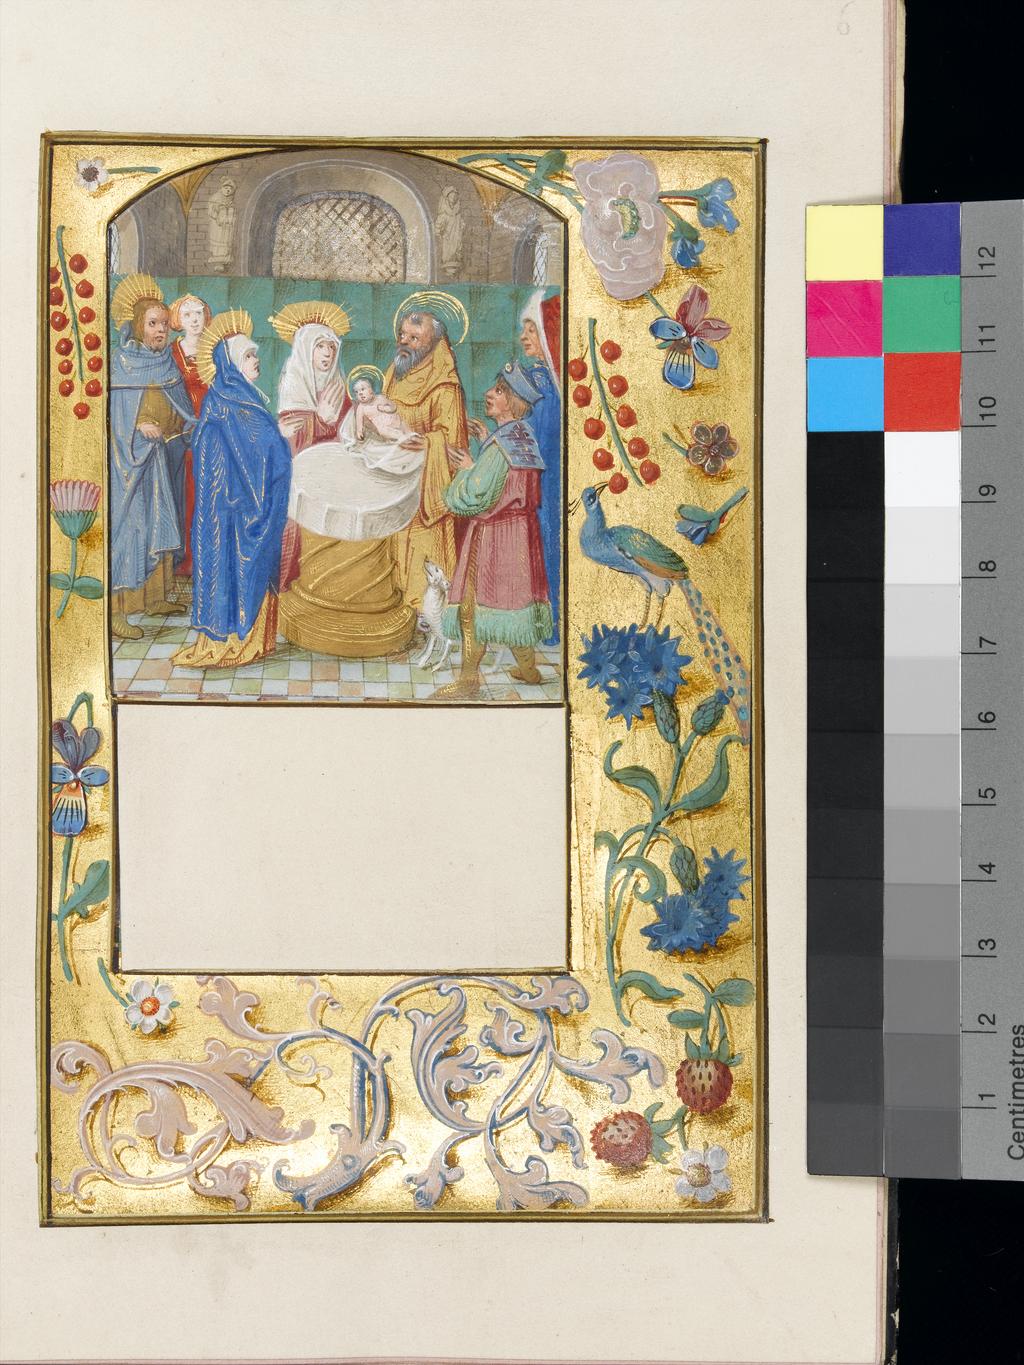 6
12
11
10
9
8
7
6
5
4
3
2
1
Centimetres